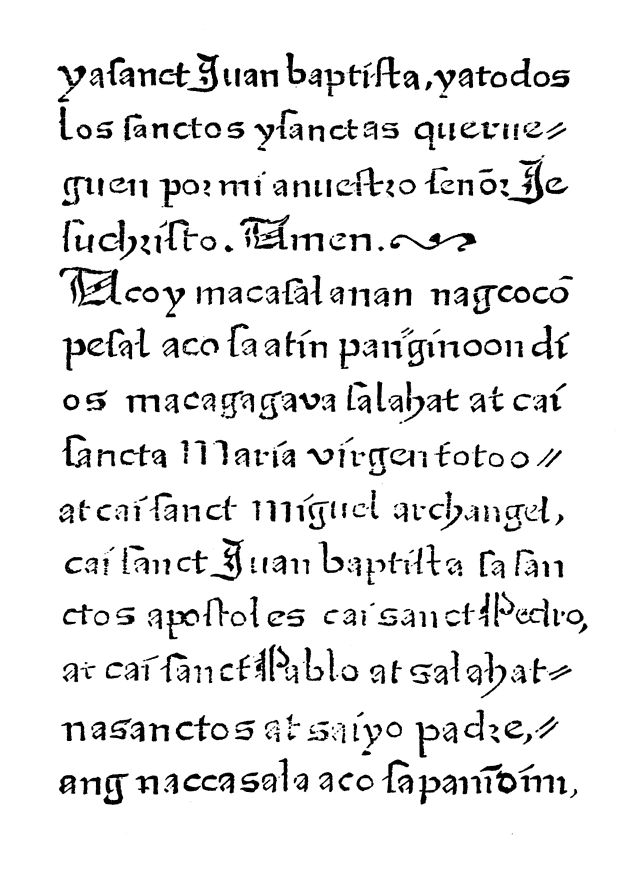 yaſanct Juan baptiſta, yatodos
los ſanctos yſanctas querue⸗
guen poꝛ mi anueſtꝛo ſenõꝛ Je
ſuchꝛiſto. Amen.
Acoy macaſalanan nagcocõ
peſal aco ſa atin pang̃inoon di
os macagagava ſalahat at cai
ſancta Maria virgen totoo⸗
at cai ſanct Miguel archangel,
cai ſanct Juan baptiſta ſa ſan
ctos apoſtoles cai sanct Pedro,
at cai ſanct Pablo at salahat⸗
nasanctos at saiyo padꝛe,⸗
ang naccasala aco ſa panĩdim,